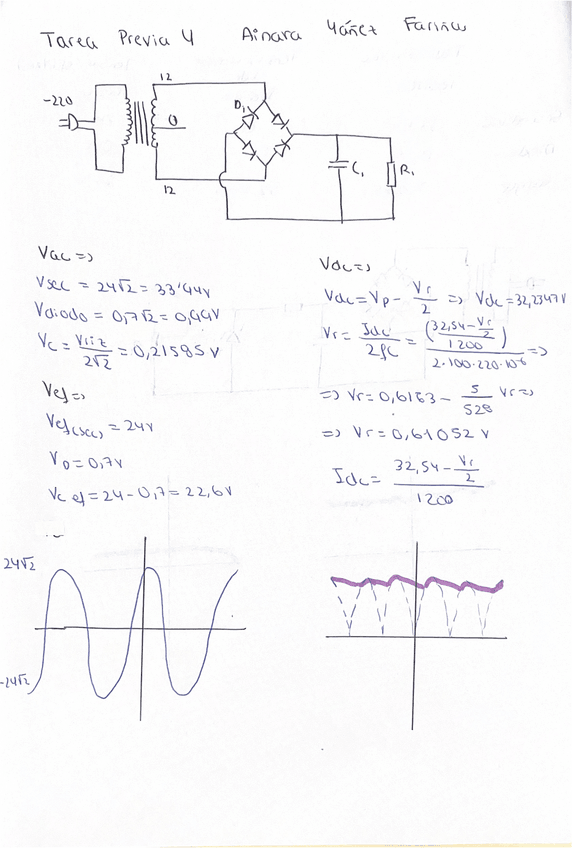 Tarea Previa 4 Ainara Yáñez Fariñas
12
~220
D1
0
C1
R1
12
Vac =>
Vsec = 24√2 = 33'94V
Vdiodo = 0,7√2 = 0,99V
Vc = Vriz/2√2 = 0,21585 V
Vef =>
Vef(sec) = 24V
VD = 0,7V
Vc ef = 24 - 0,7 = 22,6V
Vdc =>
Vdc = Vp - Vr/2 => Vdc = 32,2347V
Vr = Idc/2fC = ((32,54 - Vr/2)/1200)/(2·100·220·10⁻⁶) =>
=> Vr = 0,6163 - 5/528 Vr =>
=> Vr = 0,61052 V
Idc = (32,54 - Vr/2)/1200
24√2
-24√2